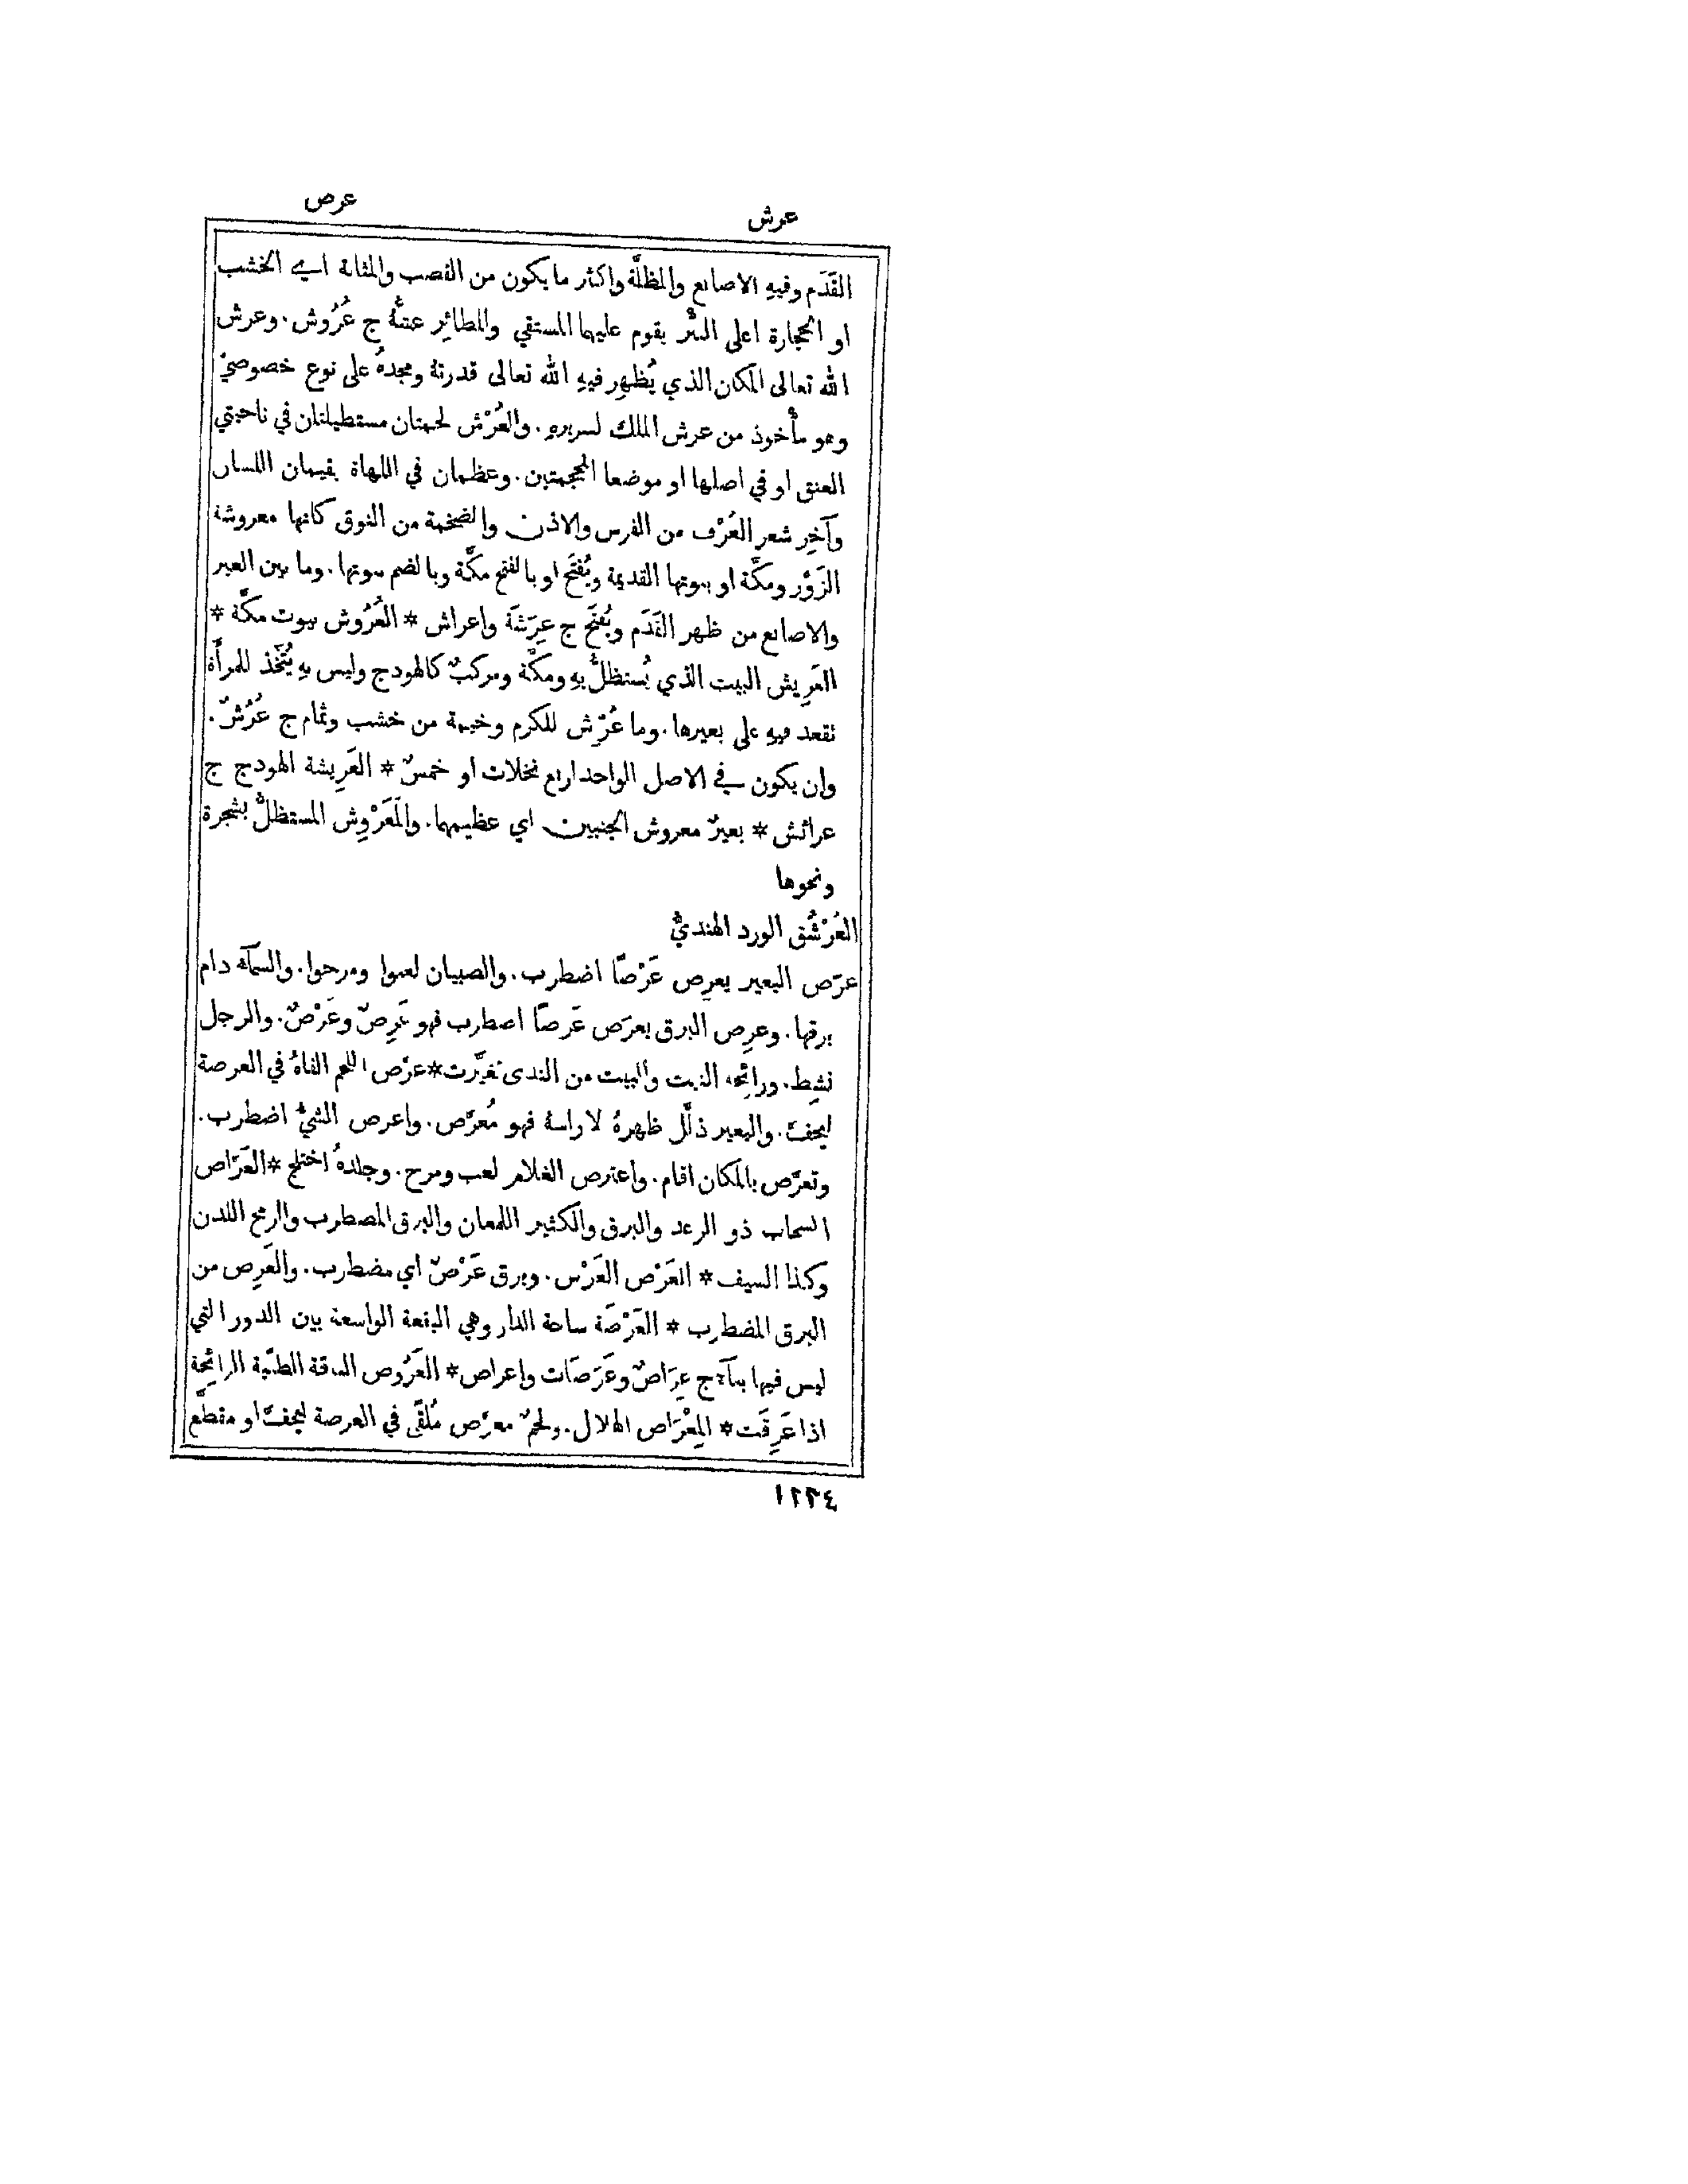 عرش عرص
القَدَم وفيهِ الاصابع والمظلَّة واكثر ما يكون من القصب والمثابة اي الخشب
او الحجارة اعلى البئر يقوم عليها المستقي والطائر عشُّهُ ج عُرُوش. وعرش
الله تعالى المكان الذي يُظهِر فيهِ الله تعالى قدرتهُ ومجدهُ على نوع خصوصيّ
وهو مأْخوذ من عرش الملك لسريرهِ. والعُرْش لحمتان مستطيلتان في ناحيتي
العنق او في اصلها او موضعا المحجمتين. وعظمان في اللهاة يقيمان اللسان
وآخِر شعر العُرْف من الفرس والاذن والضخمة من النوق كانها معروشة
الزَوْر ومكَّة او بيوتها القديمة ويُفتَح او بالفتح مكَّة وبالضم بيوتها. وما بين العير
والاصابع من ظهر القَدَم ويُفتَح ج عِرَشَة واعراش * العُرُوش بيوت مكَّة *
العَرِيش البيت الذي يُستظلُّ بهِ ومكَّة ومركبٌ كالهودج وليس بهِ يُتَّخذ للمرأَة
تقعد فيهِ على بعيرها. وما عُرِّش للكرم وخيمة من خشب وثمام ج عُرُشٌ.
وان يكون في الاصل الواحد اربع نخلات او خمسٌ * العَرِيشة الهودج ج
عرائش * بعيرٌ معروش الجنبين اي عظيمهما. والمَعْرُوش المستظلُّ بشجرة
ونحوها
العُرْشُق الورد الهنديُّ
عرَص البعير يعرِص عَرْصًا اضطرب. والصبيان لعبوا ومرحوا. والسمآءُ دام
برقها. وعرِص البرق يعرَص عَرصًا اضطرب فهو عَرِصٌ وعَرْصٌ. والرجل
نشِط. ورائحة النبت والبيت من الندى تغيَّرت * عرَّص اللحم القاهُ في العرصة
ليجفَّ. والبعير ذلَّل ظهرهُ لا راسهُ فهو مُعرَّص. واعرص الشيءُ اضطرب.
وتعرَّص بالمكان اقام. واعترص الغلام لعب ومرح. وجلدهُ اختلج * العَرَّاص
السحاب ذو الرعد والبرق والكثير اللمعان والبرق المضطرب والرمح اللدن
وكذا السيف * العَرْص العَرْس. وبرق عَرْصٌ اي مضطرب. والعَرِص من
البرق المضطرب * العَرْصَة ساحة الدار وهي البقعة الواسعة بين الدور التي
ليس فيها بنآءٌ ج عِرَاصٌ وعَرَصَات واعراص * العَرُوص الناقة الطيّبة الرائِحة
اذا عَرِقَت * المِعْرَاص الهلال. ولحمٌ معرَّص مُلقًى في العرصة ليجفَّ او مقطَّع
١٣٣٤